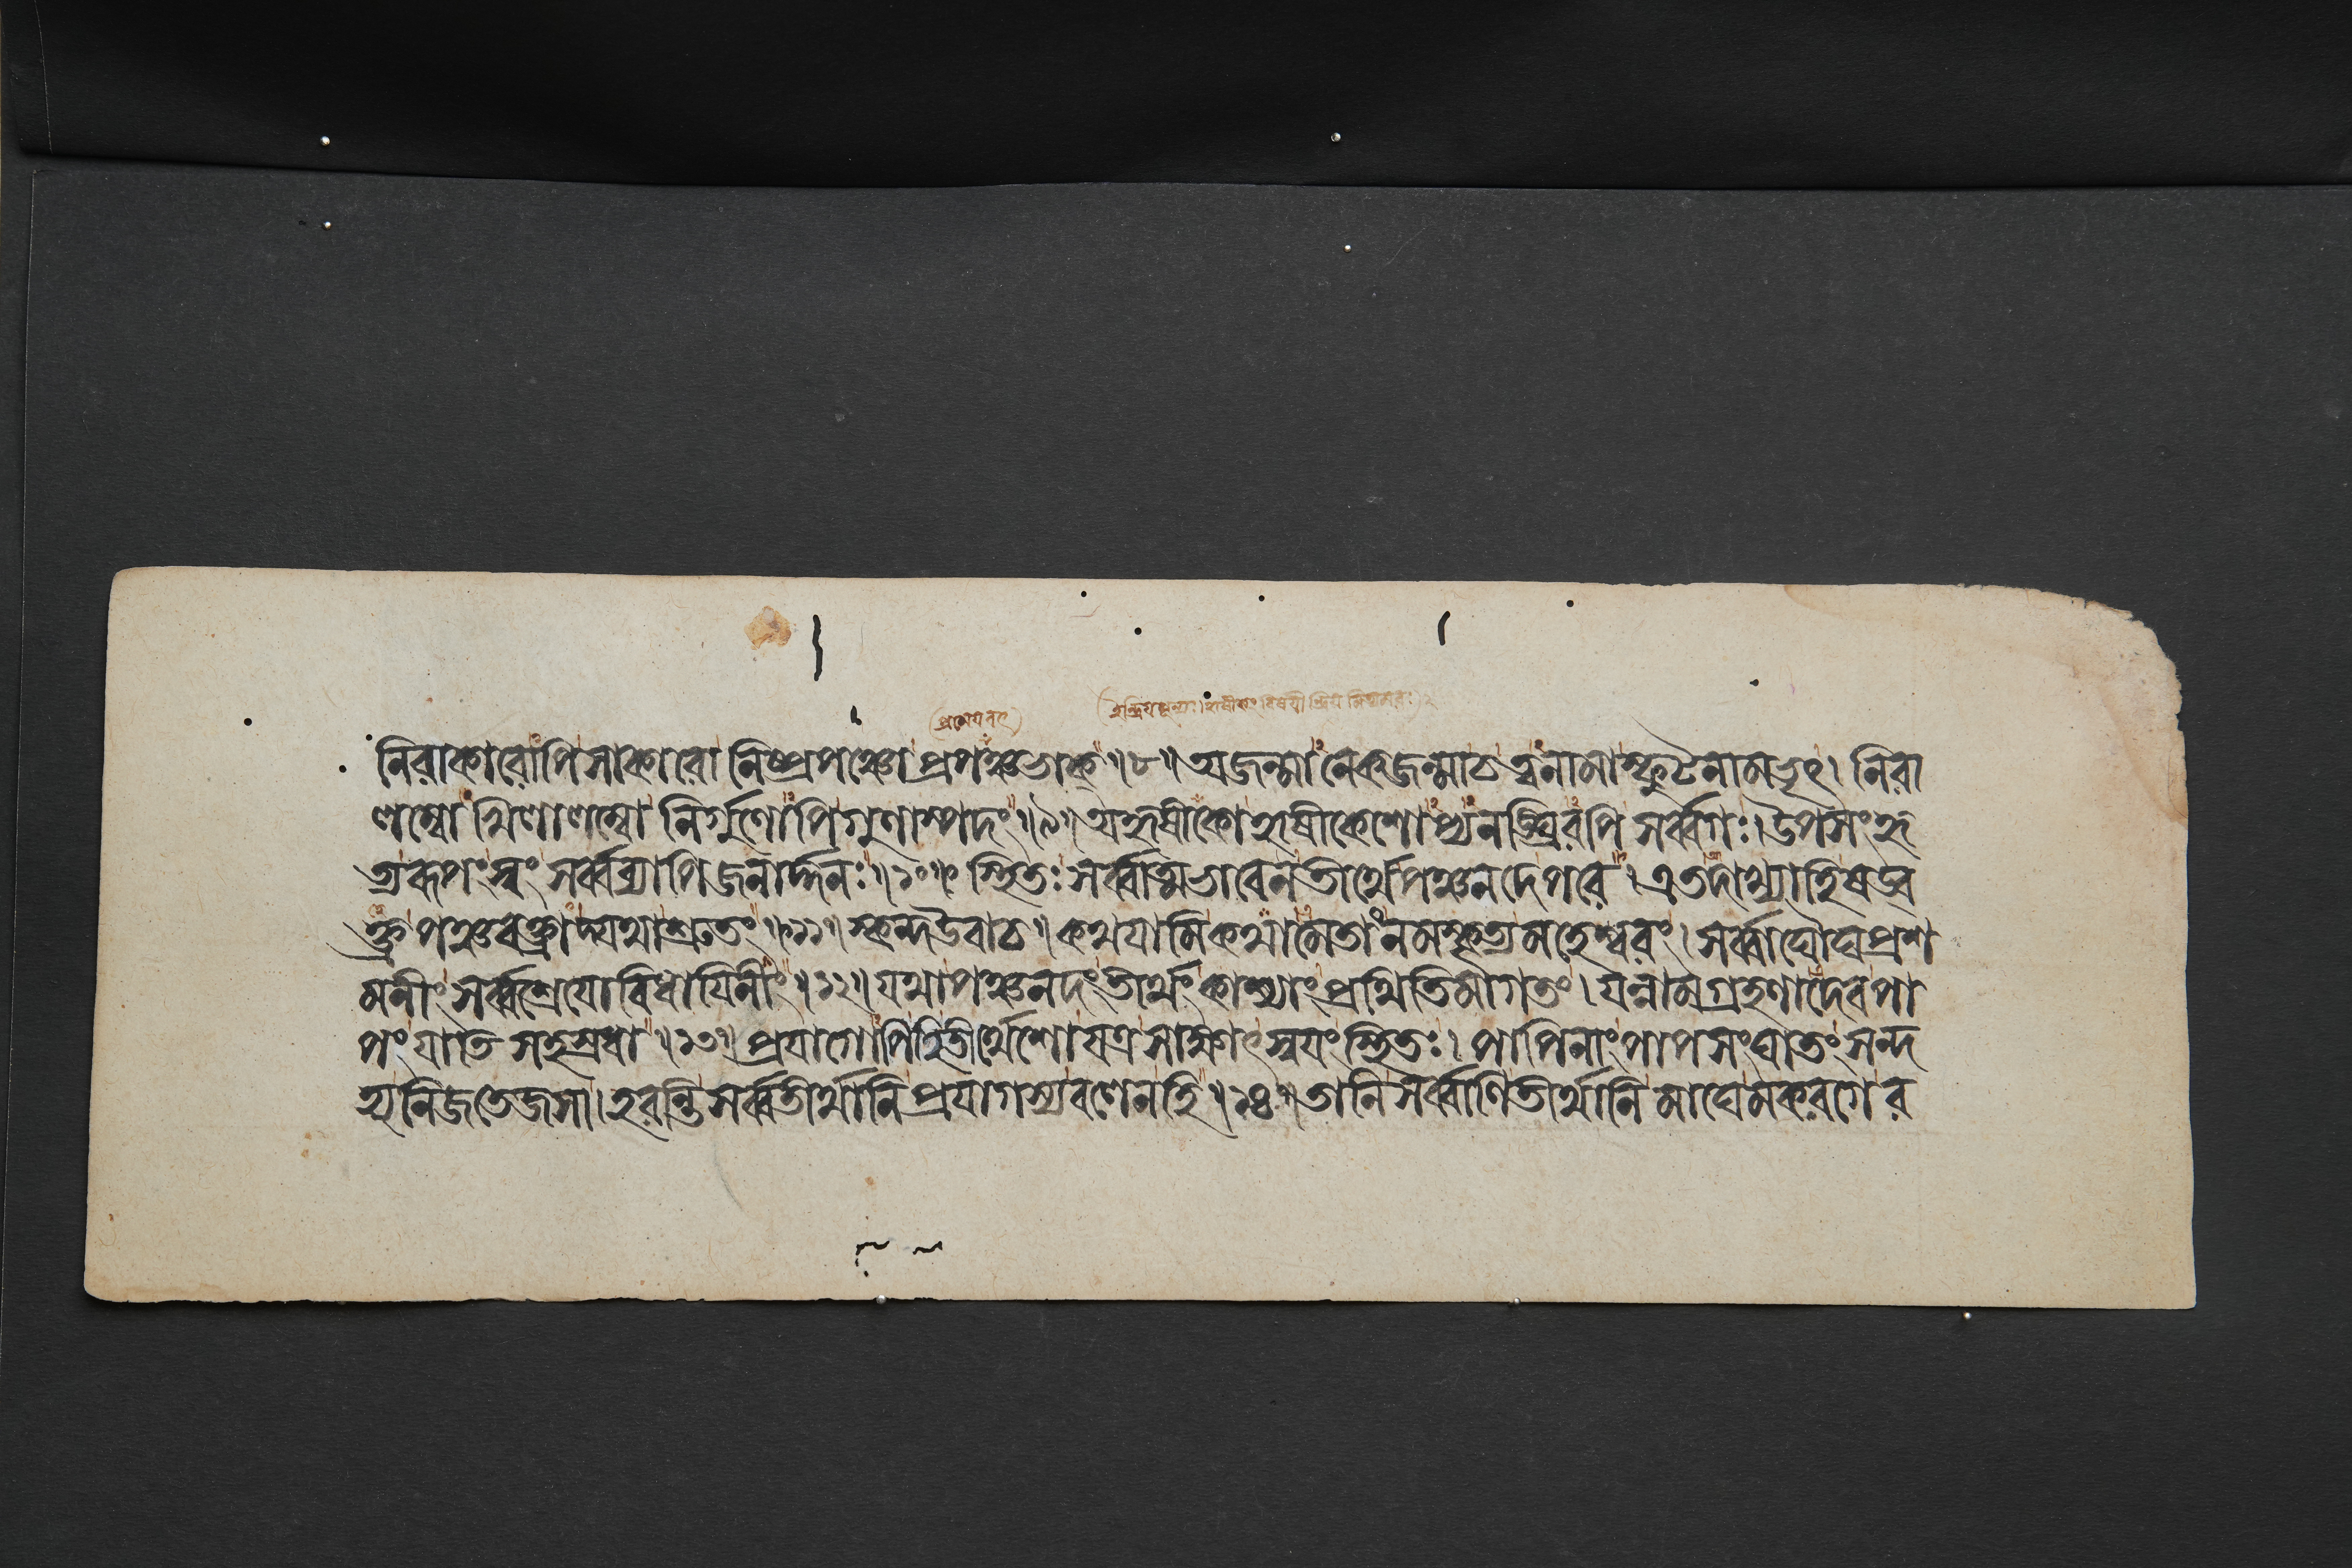 ইন্দ্রিযশূন্যঃ। হৃষীকং বিষযীন্দ্রিয
নিরাকারোপিসাকারো নিষ্প্রপঞ্চো প্রপঞ্চভাক্॥৮॥ অজন্মানেকজন্মাচ ত্বনামাস্ফুটনামভৃৎ। নিরা
লম্বো খিলালম্বো নির্গুণোপিগুণাস্পদং॥৯॥ অহৃষীকোহৃষীকেশোপ্যনঙ্ঘ্রিরপি সর্ব্বগঃ। উপসংহৃ
ত্যরূপংস্বং সর্ব্বব্যাপি জনার্দ্দনঃ॥১০॥ স্থিতঃ সর্ব্বাত্মভাবেনতীর্থেপঞ্চনদেপরে। এতদাখ্যাহিষড্ব
ক্ত্রপঞ্চবক্ত্রাদ্যথাশ্রুতং॥১১॥ স্কন্দউবাচ॥ কথযামিকথামেতাংনমস্কৃত্যমহেশ্বরং। সর্ব্বাঘৌঘপ্রশ
মনীং সর্ব্বশ্রেযোবিধাযিনীং॥১২॥ যথাপঞ্চনদংতীর্থংকাশ্যাংপ্রথিতিমাগতং। যন্নামগ্রহণাদেবপা
পংযাতি সহস্রধা॥১৩॥ প্রযাগোপিহিতীর্থেশোযত্রসাক্ষাৎস্বযংস্থিতঃ। পাপিনাংপাপসংঘাতংসন্দ
হ্যনিজতেজসা। হরন্তি সর্ব্বতীর্থানি প্রযাগস্যবলেনহি॥১৪॥ তানি সর্ব্বাণিতীর্থানি মাঘেমকরগের